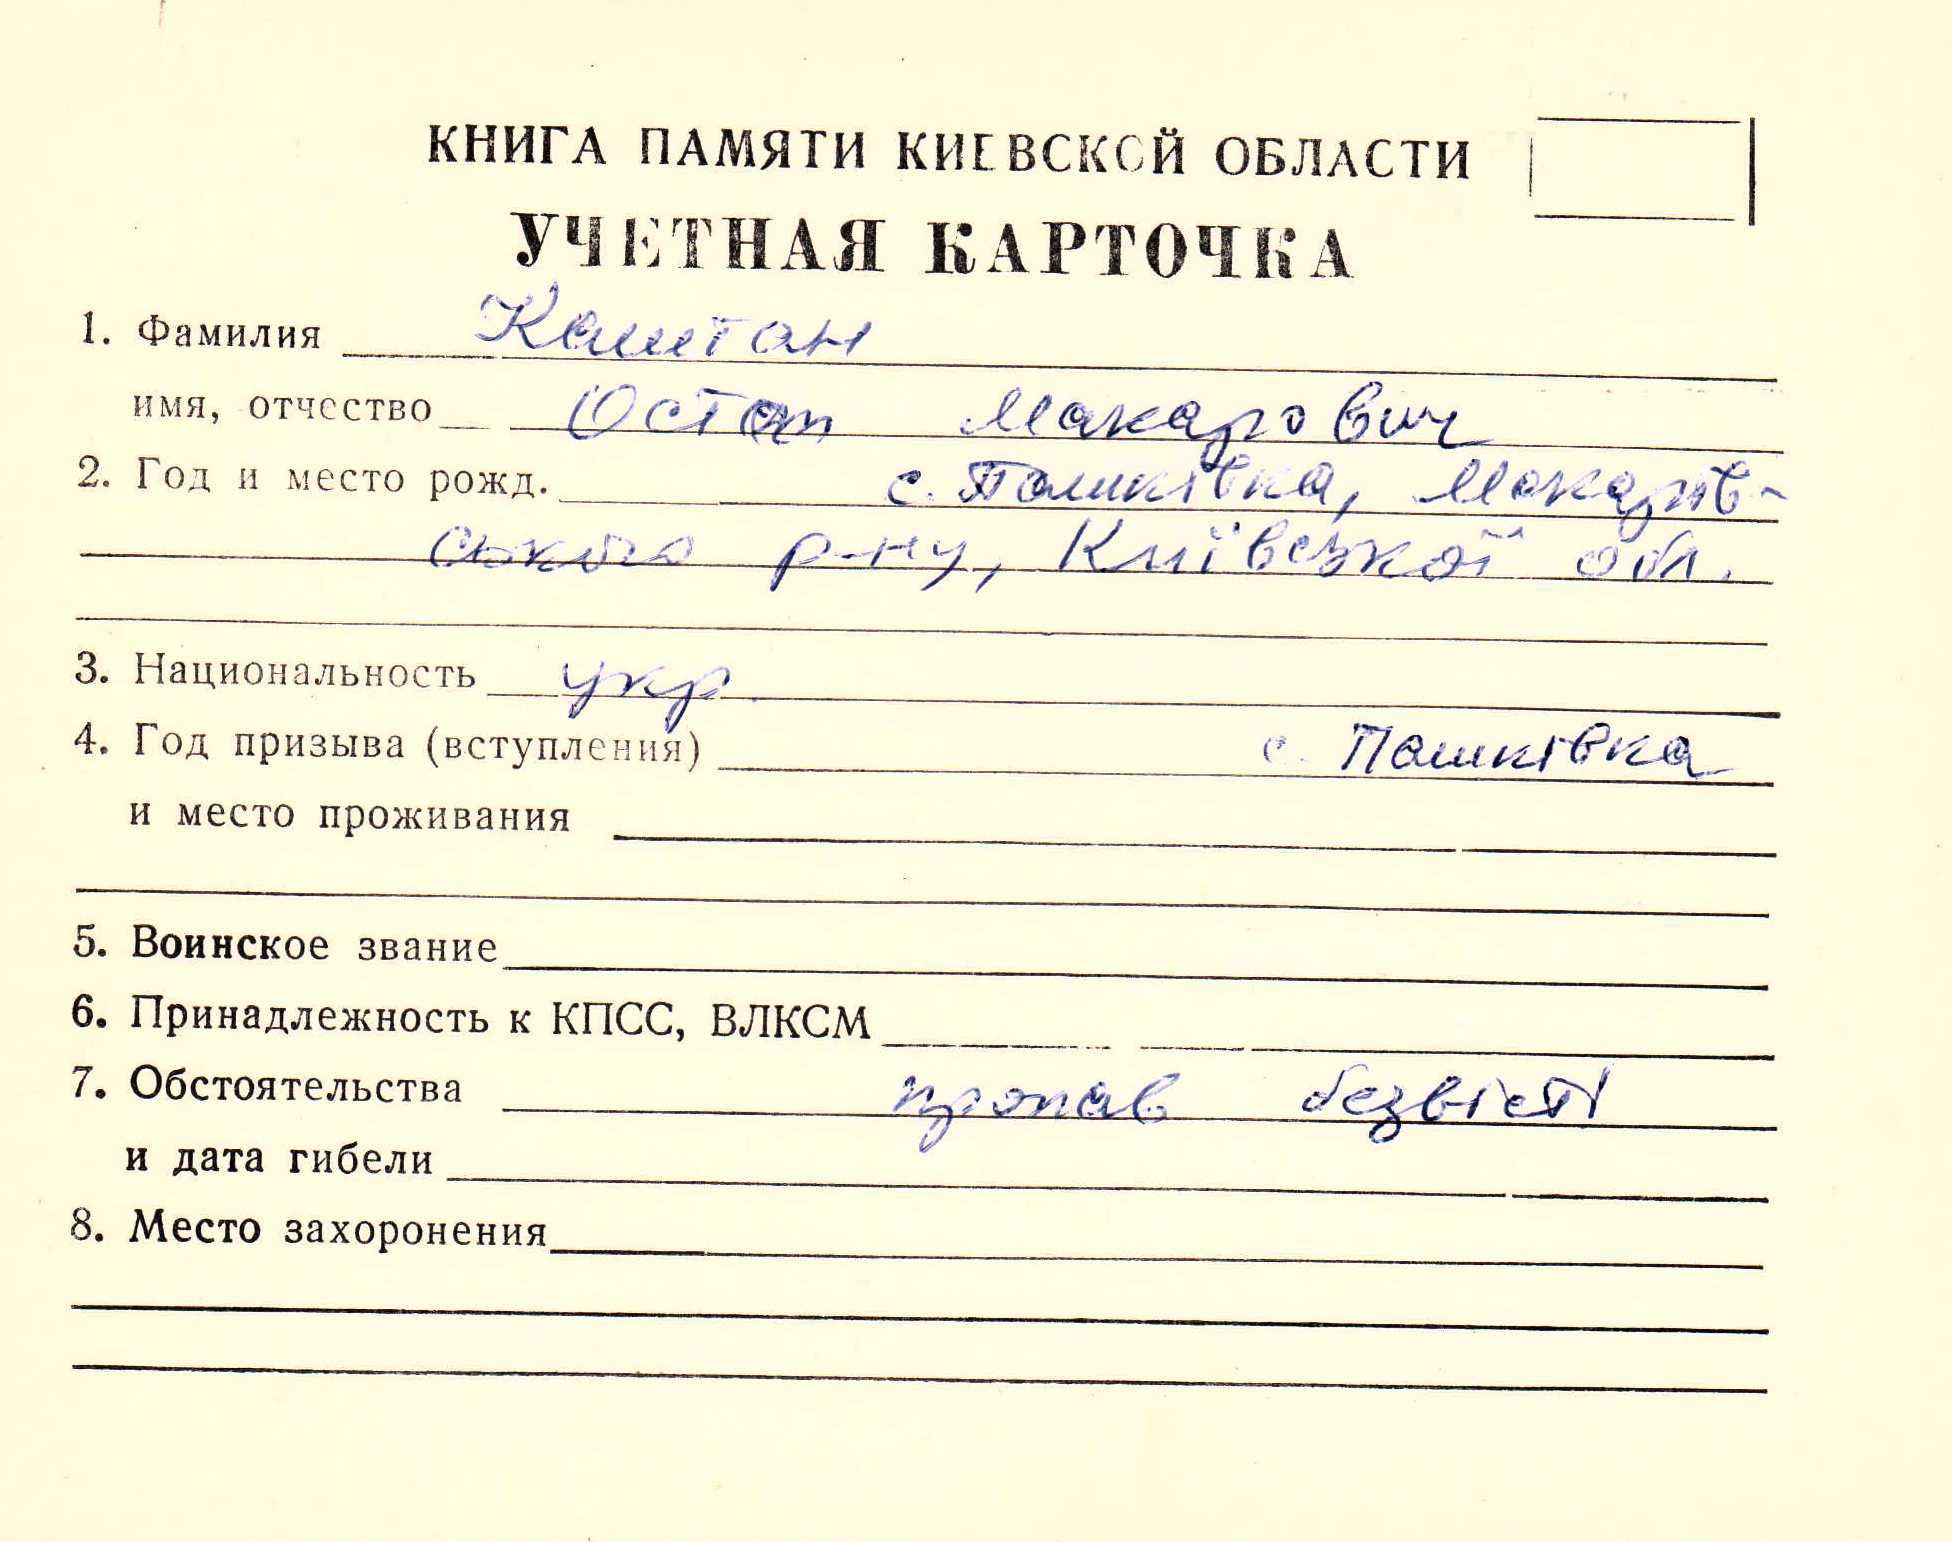 КНИГА ПАМЯТИ КИЕВСКОЙ ОБЛАСТИ
УЧЕТНАЯ КАРТОЧКА
1. Фамилия Каштан
имя, отчество Остап Макарович
2. Год и место рожд. с. Пашківка, Макарів-
ського р-ну, Київської обл.
3. Национальность укр
4. Год призыва (вступления) с. Пашківка
и место проживания
5. Воинское звание
6. Принадлежность к КПСС, ВЛКСМ
7. Обстоятельства пропав безвісті
и дата гибели
8. Место захоронения